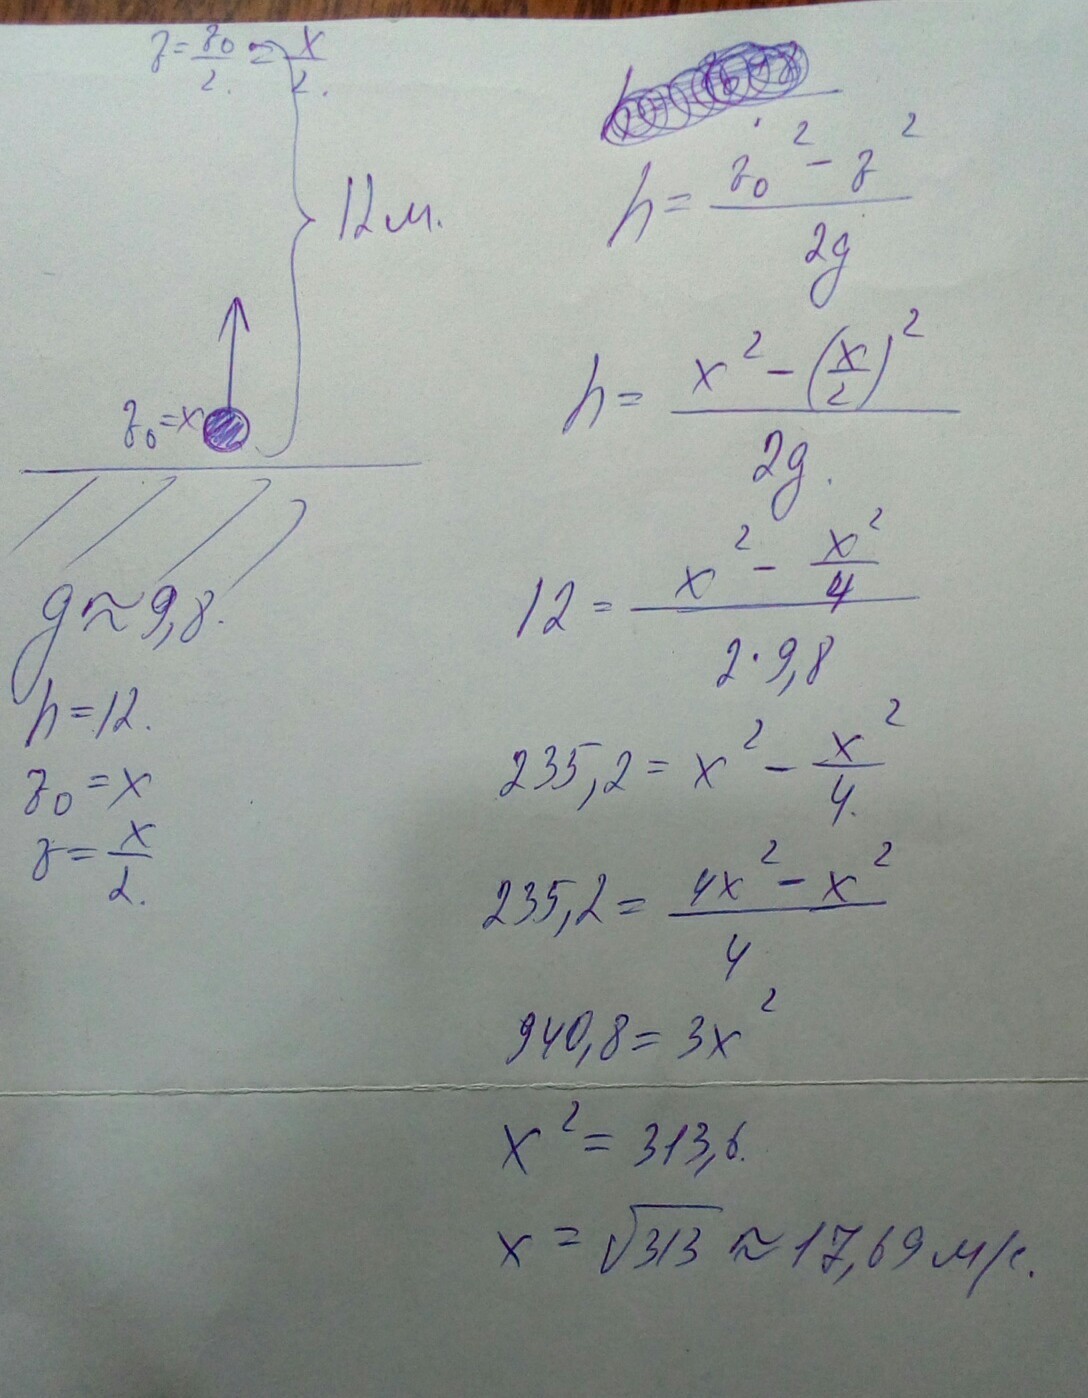 v = v₀/2 = x/2.
12 м.
v₀ = x
g ≈ 9,8.
h = 12.
v₀ = x
v = x/2.
h = (v₀² - v²)/2g
h = (x² - (x/2)²)/2g.
12 = (x² - x²/4)/(2·9,8)
235,2 = x² - x²/4.
235,2 = (4x² - x²)/4
940,8 = 3x²
x² = 313,6.
x = √313 ≈ 17,69 м/с.